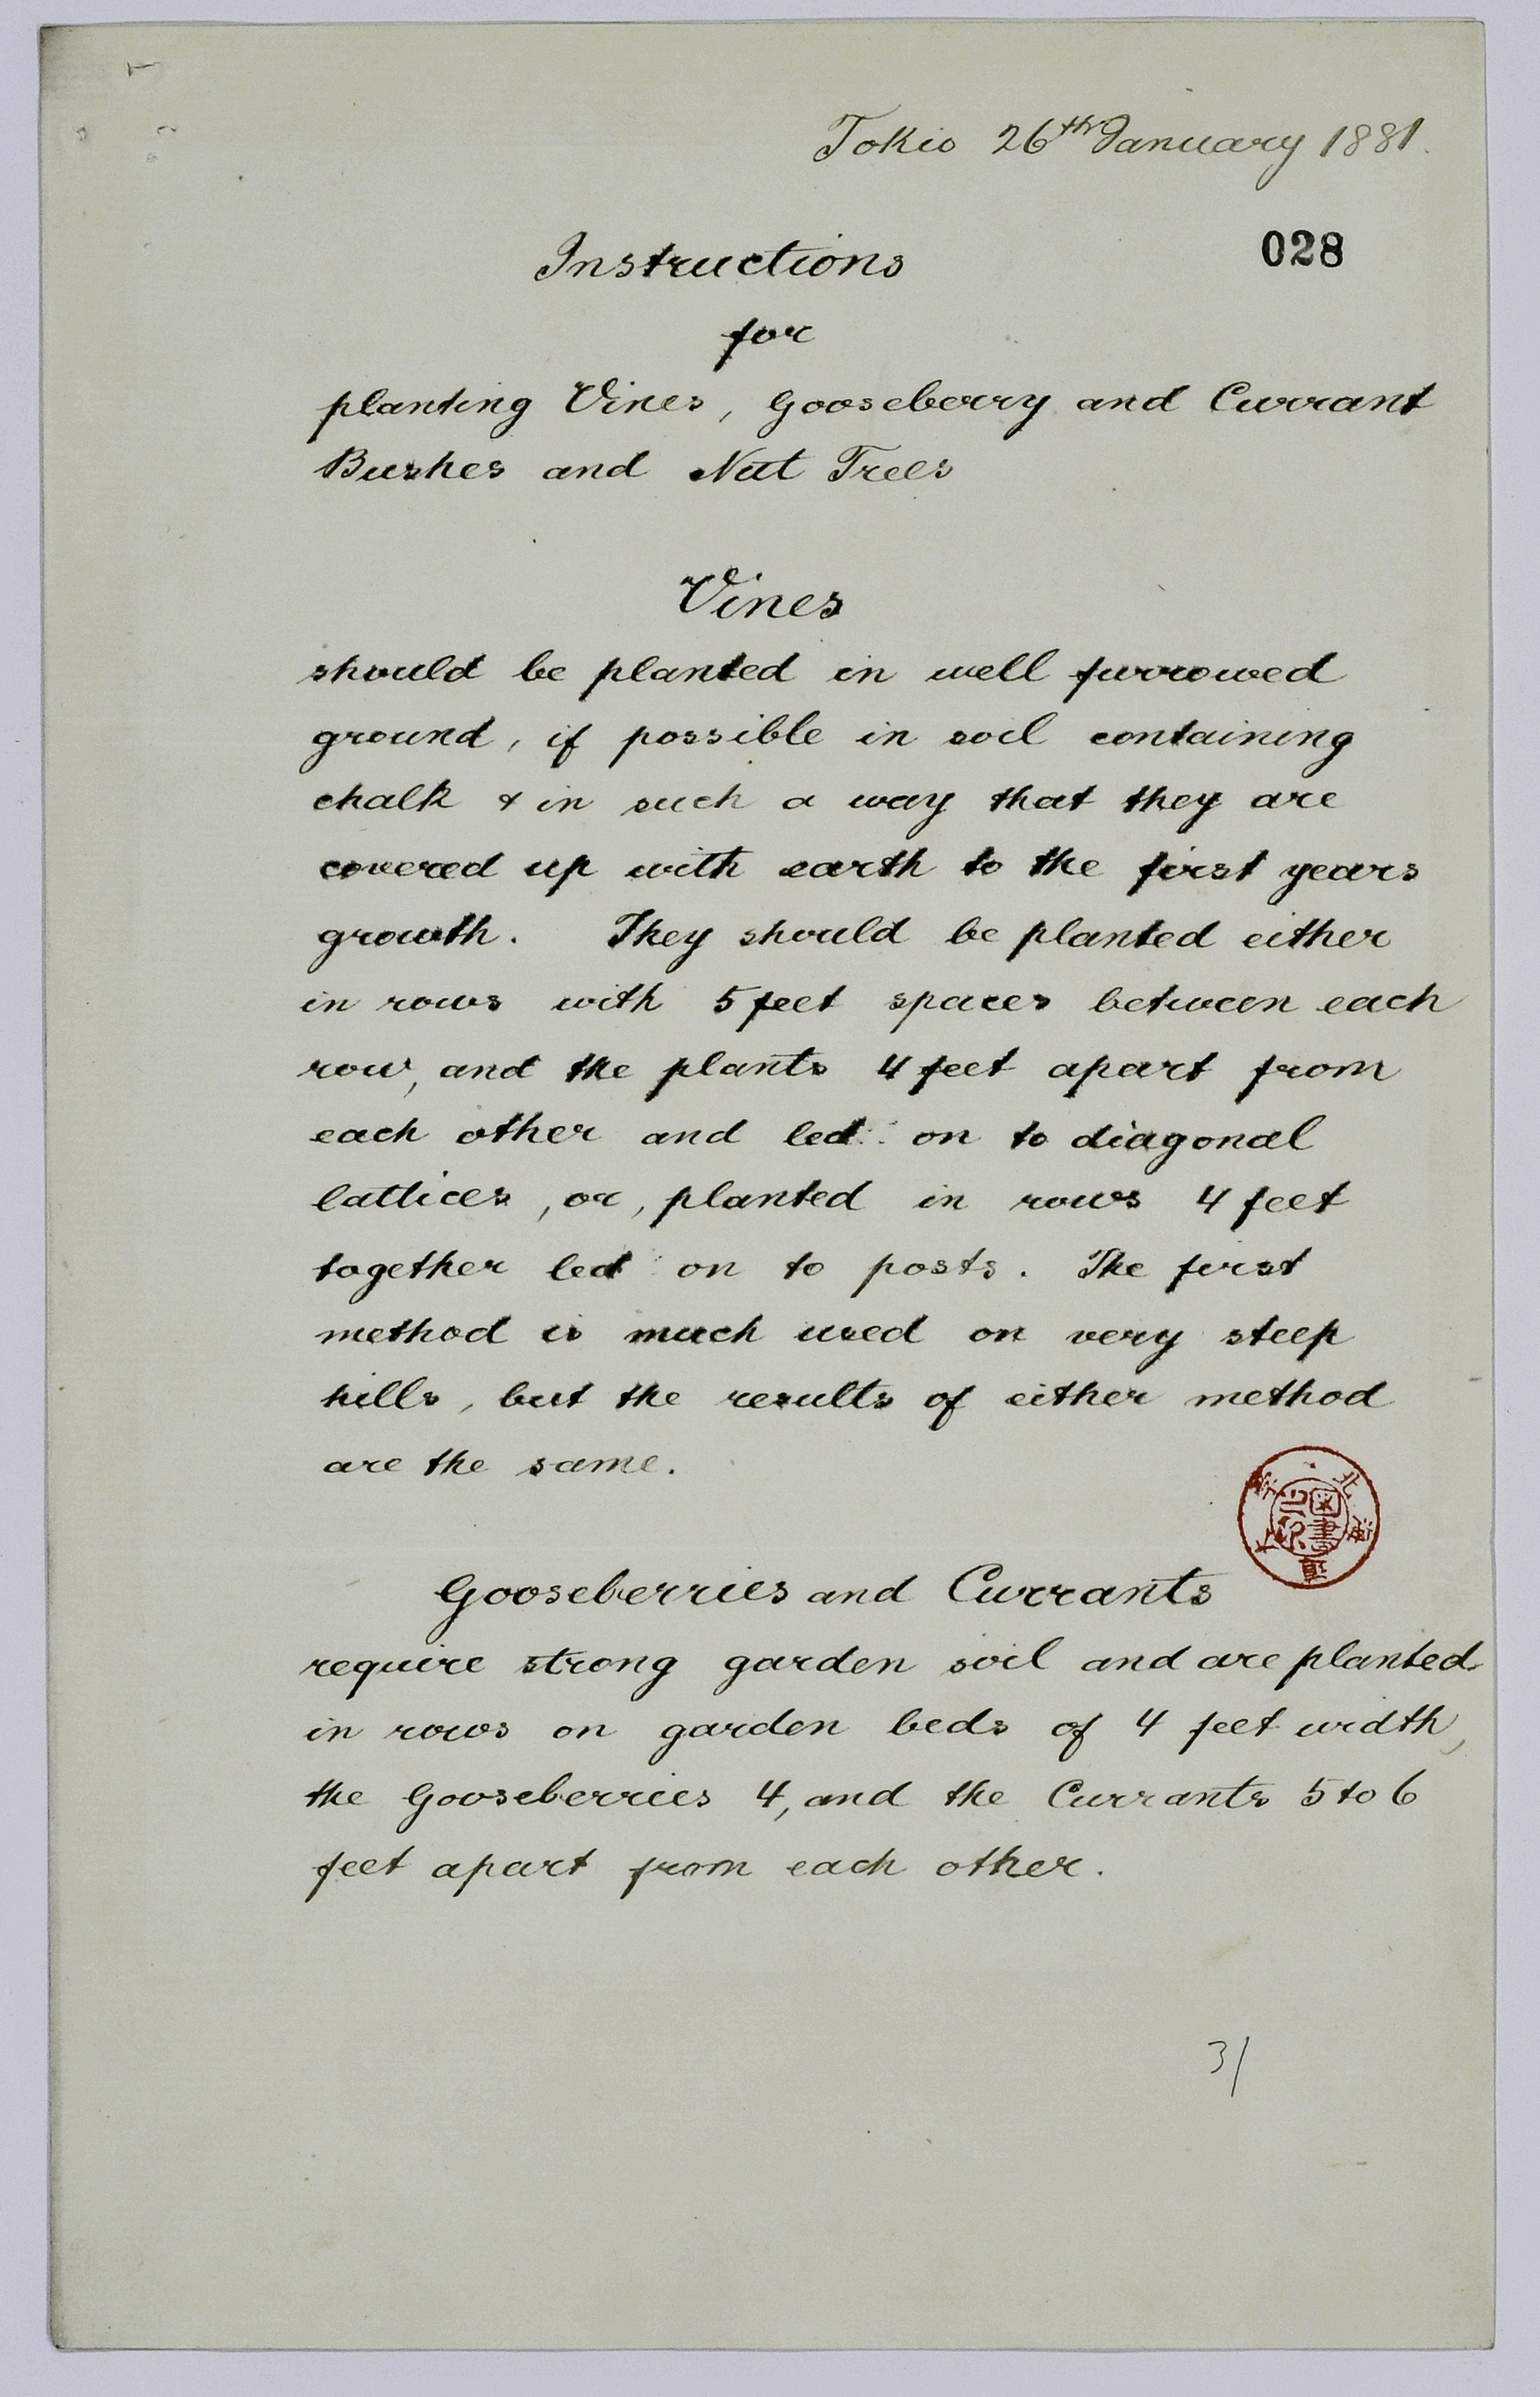 Tokio 26th January 1881.
028
Instructions
for
planting Vines, Gooseberry and Currant
Bushes and Nut Trees
Vines
should be planted in well furrowed
ground, if possible in soil containing
chalk & in such a way that they are
covered up with earth to the first years
growth. They should be planted either
in rows with 5 feet spaces between each
row, and the plants 4 feet apart from
each other and led on to diagonal
lattices, or, planted in rows 4 feet
together led on to posts. The first
method is much used on very steep
hills, but the results of either method
are the same.
図書
Gooseberries and Currants
require strong garden soil and are planted
in rows on garden beds of 4 feet width,
the Gooseberries 4, and the Currants 5 to 6
feet apart from each other.
31